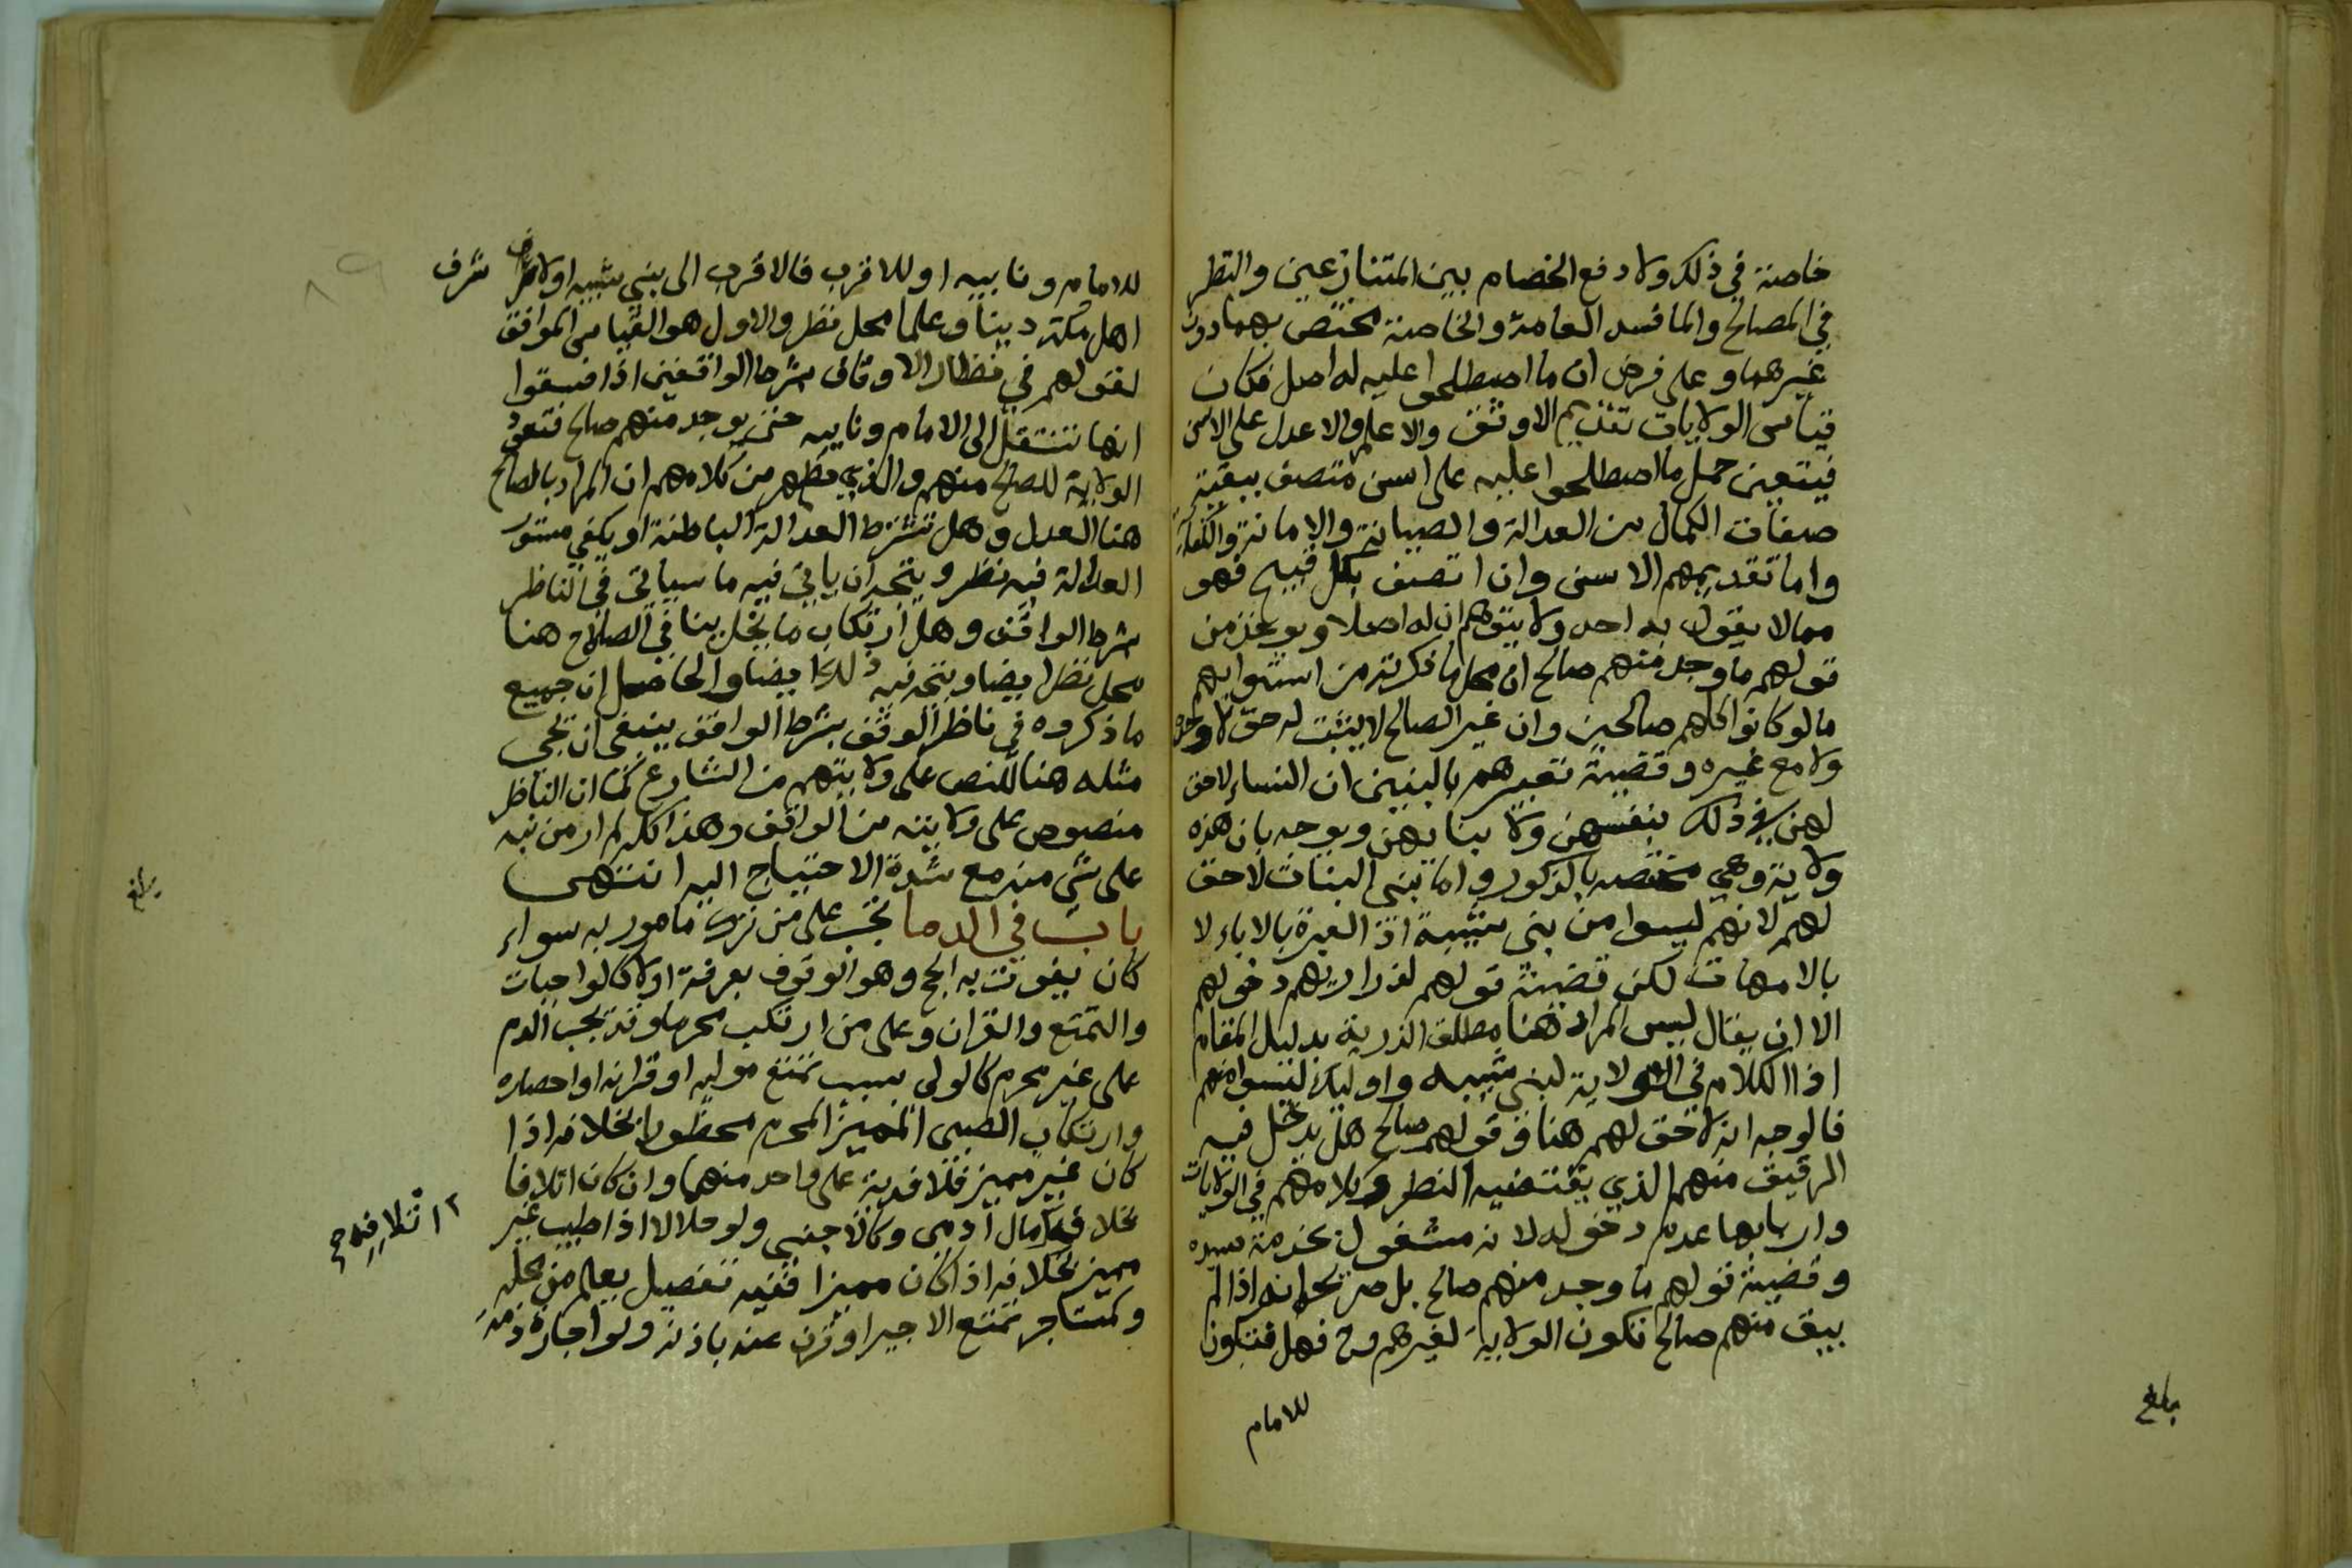 خاصة في ذلك ولا دفع الخصام بين المتنازعين والنظر
في المصالح والمفاسد العامة والخاصة مختص بهما دون
غيرهما وعلى فرض ان ما اصطلحوا عليه له اصل فكان
قياس الولايات تقديم الاوثق والاعلم والاعدل على الاسن
فيتعين حمل ما اصطلحوا عليه على اسن متصف ببقية
صفات الكمال من العدالة والصيانة والامانة والكفاءة
واما تقديمهم الاسن وان اتصف بكل قبيح فهو
مما لا يقول به احد ولا يتوهم ان له اصلا ويوخذ من
قولهم ما وجد منهم صالح ان محل ما ذكرته من استوايهم
ما لو كانوا كلهم صالحين وان غير الصالح لا يثبت له حق لا وحده
ولا مع غيره وقضية تعبيرهم بالبنين ان النساء لا حق
لهن في ذلك بنفسهن ولا بنايهن ويوجه بان هذه
ولاية وهي مختصة بالذكور واما بني البنات لا حق
لهم لانهم ليسوا من بني شيبة اذ العبرة بالاباء لا
بالامهات لكن قضية قولهم لذراريهم دخولهم
الا ان يقال ليس المراد هنا مطلق الذرية بدليل المقام
اذ الكلام في الولاية لبني شيبة واوليك ليسوا منهم
فالوجه انه لا حق لهم هنا وقولهم صالح هل يدخل فيه
الرقيق منهم الذي يقتضيه النظر وكلامهم في الولايات
واربابها عدم دخوله لانه مشغول بخدمة سيده
وقضية قولهم ما وجد منهم صالح بل صريحه انه اذا لم
يبق منهم صالح تكون الولاية لغيرهم وح فهل فتكون
للامام
بلغ
للامام ونايبه او للاقرب فالاقرب الى بني شيبة او لاشراف
شرف
اهل مكة دينا وعلما محل نظر والاول هو القياس الموافق
لقولهم في نظار الاوقاف بشرط الواقفين اذا فسقوا
انها تنتقل الى الامام ونايبه حتى يوجد منهم صالح فتعود
الولاية للصالح منهم والذي يظهر من كلامهم ان المراد بالصالح
هنا العدل وهل تشترط العدالة الباطنة او يكفي مستور
العدالة فيه نظر ويتجه ان ياتي فيه ما سياتي في الناظر
بشرط الواقف وهل ارتكاب ما يخل ينافي الصلاح هنا
محل نظر ايضا ويتجه فيه ذلك ايضا والحاصل ان جميع
ما ذكروه في ناظر الوقف بشرط الواقف ينبغي ان يجي
مثله هنا للنص على ولايتهم من الشارع كما ان الناظر
منصوص على ولايته من الواقف وهذا كله لم ار من نبه
على شي منه مع شدة الاحتياج اليه انتهى
باب في الدما تجب على من ترك مامور به سواء
كان يفوت به الحج وهو الوقوف بعرفة اولا كالواجبات
والتمتع والقران وعلى من ارتكب محرما وقد يجب الدم
على غير محرم كالولي بسبب تمتع موليه او قرانه او احصاره
وارتكاب الصبي المميز المحرم محظورا بخلافه اذا
كان غير مميز فلا فدية على واحد منهما وان كان اتلافا
بخلافه مال آدمي وكالاجنبي ولو حلالا اذا طيب غير
مميز بخلافه اذا كان مميزا ففيه تفصيل يعلم من محله
وكمستاجر تمتع الاجير او قرن عنه باذنه ولو اجارة ذمة
بلغ